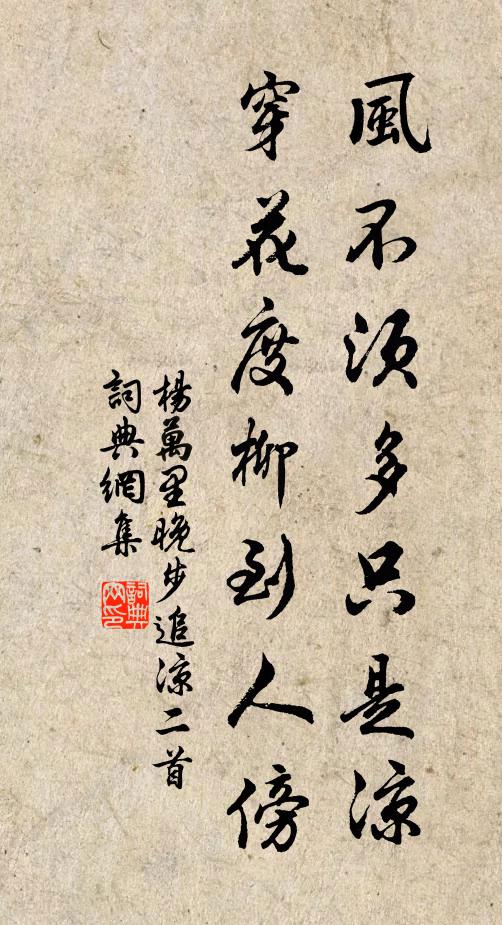 風不須多只是涼
穿花度柳到人傍
楊萬里晚步追涼二首
詞典網集
詞典网印